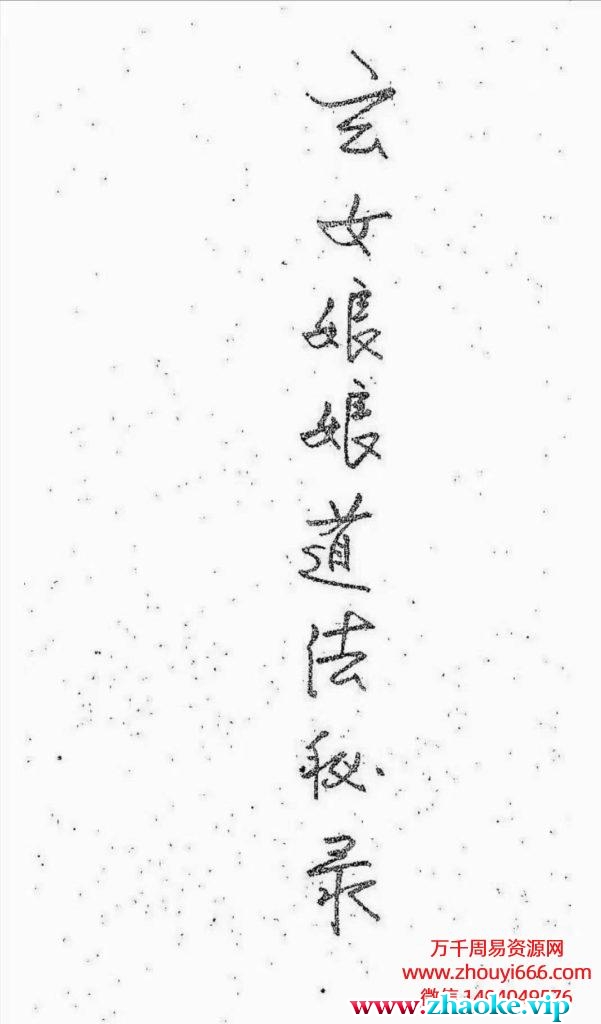 玄女娘娘道法秘录
万千周易资源网
www.zhouyi666.com
微信
www.zhaoke.vip